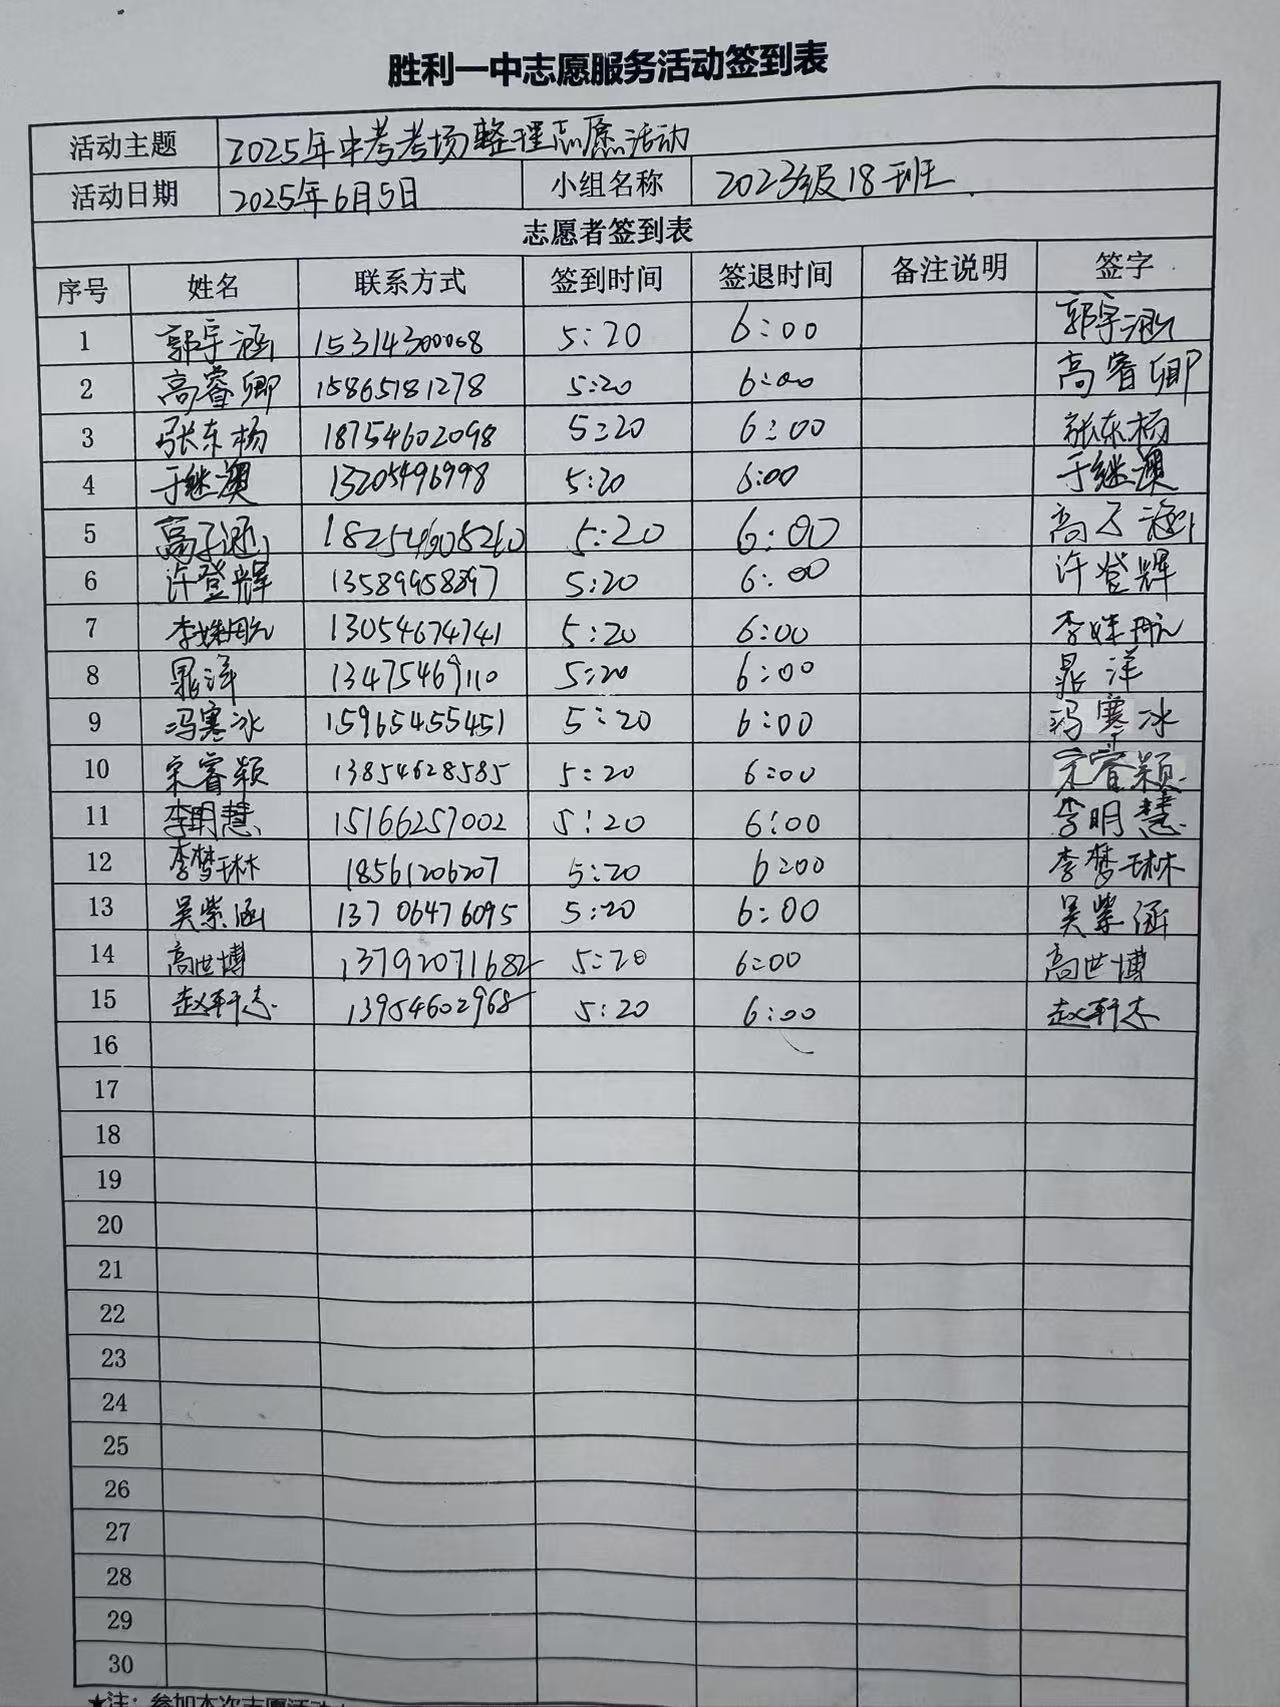 胜利一中志愿服务活动签到表
活动主题 2025年中考考场整理志愿活动
活动日期 2025年6月5日 小组名称 2023级18班
志愿者签到表
序号 姓名 联系方式 签到时间 签退时间 备注说明 签字
1 郭宇涵 15314300068 5:20 6:00 郭宇涵
2 高睿卿 15865181278 5:20 6:00 高睿卿
3 张东杨 18754602098 5:20 6:00 张东杨
4 于继澳 13205496998 5:20 6:00 于继澳
5 高子涵 18254605260 5:20 6:00 高子涵
6 许登辉 13589958897 5:20 6:00 许登辉
7 李姝 13054674741 5:20 6:00 李姝
8 晁洋 13475469110 5:20 6:00 晁洋
9 冯寒冰 15965455451 5:20 6:00 冯寒冰
10 宋睿颖 13854628585 5:20 6:00 宋睿颖
11 李明慧 15166257002 5:20 6:00 李明慧
12 李梦琳 18561206207 5:20 6:00 李梦琳
13 吴紫涵 13706476095 5:20 6:00 吴紫涵
14 高世博 13792071682 5:20 6:00 高世博
15 赵轩志 13954602968 5:20 6:00 赵轩志
16
17
18
19
20
21
22
23
24
25
26
27
28
29
30
★注：参加本次志愿活动